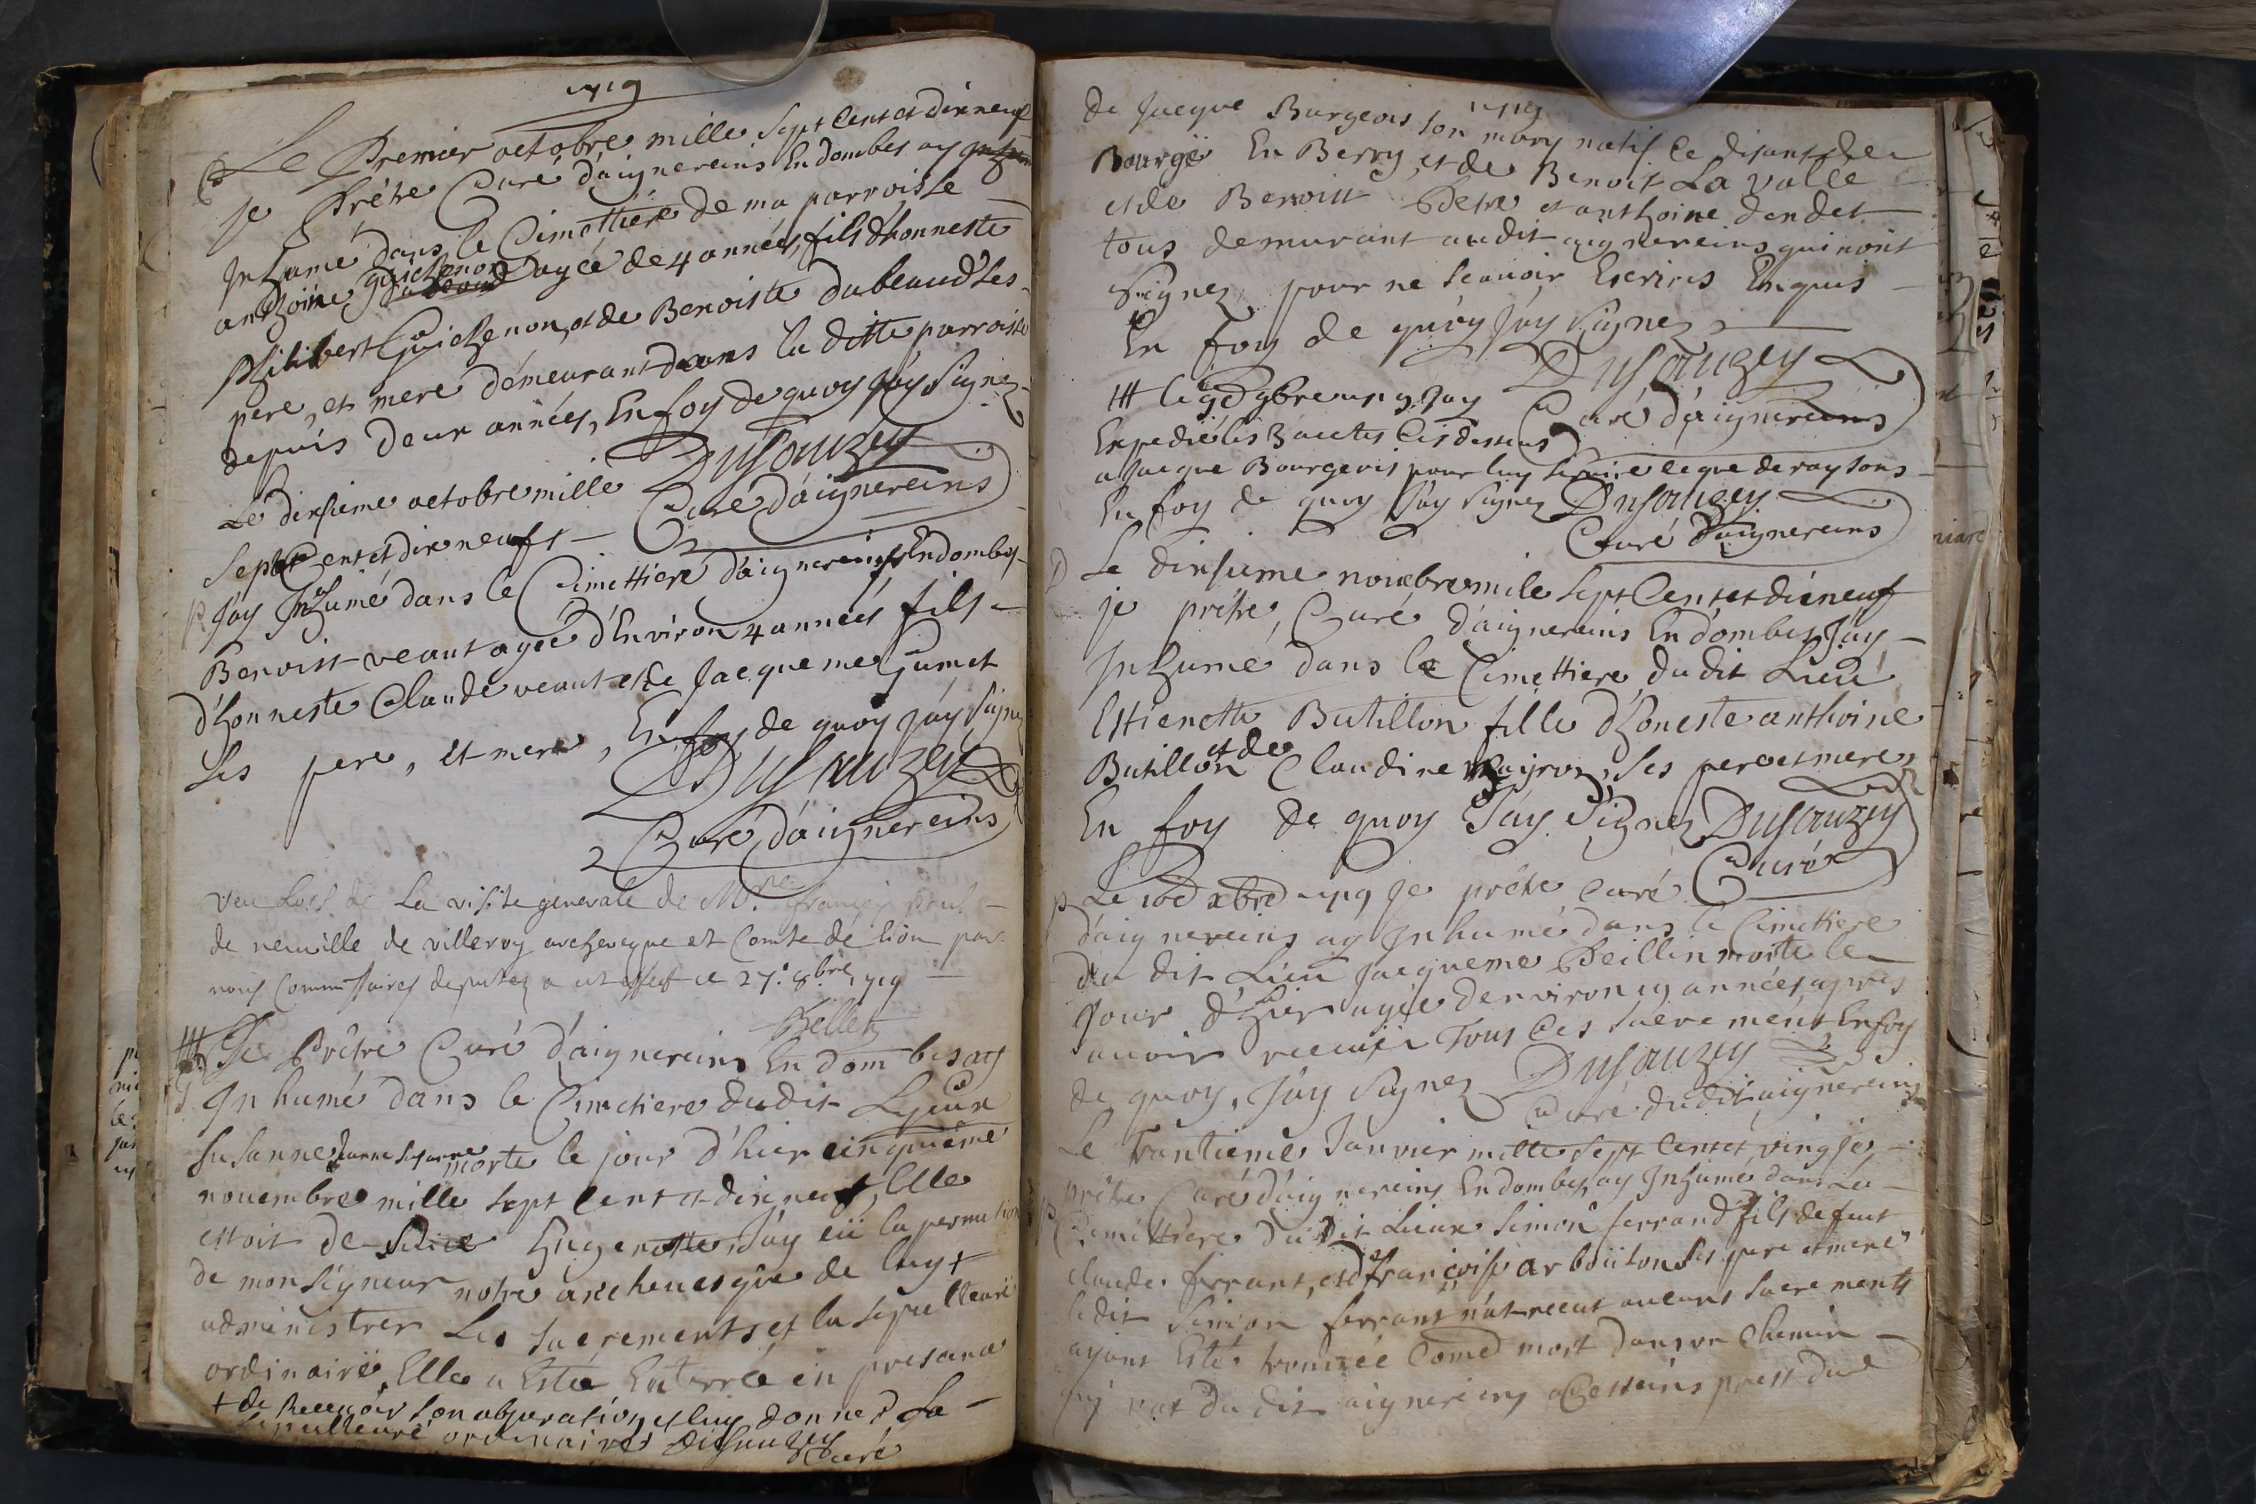 1719
Le Premier octobre mille Sept Cent et dixneuf
je Prêtre Curé d'aignereins En dombes ay
Inhumé dans le Cimettiére de ma parroisse
anthoine guichenon agée de 4 années, fils d'honneste
philibert Guichenon, et de Benoiste dubeaud ses
pere, et mere démeurant dans la ditte parroisse
depuis deux années, En foy de quoy j'ay Signez
Dusauzey
Curé d'aignereins
Le dixsieme octobre mille
Sept Cent et dix neufs
j'ay Inhumé dans le Cimettiere d'aignereins En dombes
Benoist veaut agée d'Environ 4 années fils
d'honneste Claude veaut et de Jacqueme Gumet
ses pere, et mere, En foy de quoy j'ay Signez
Dusauzey
Curé d'aignereins
veu Lors de La visite generale de Mre françois paul
de neuville de villeroy archeveque et Comte de lion par
nous Commissaires deputez a cet effet ce 27e 8bre 1719
Je Prêtre Curé d'aignereins En dombes ay
Inhumé dans le Cimetiere dudit Lyeux
Susanne morte le jour d'hier cinquiême
novembre mille sept Cent et dix neuf, Elle
estoit de Hugenotte, J'ay eü la permition
de monseigneur notre archevesque de luy +
administrer Les Sacrements et la sepulteure
ordinaire, Elle a Estée Enterrée en presance
+ de Recevoir son abjuration et luy donner La
sepulteure ordinaire Dusauzey
Curé
1719
de Jacque Burgeois son mary natif ce disant de
Bourge En Berry, et de Benoit La valle
et de Benoist Petre et anthoine dendet
tous demurant audit aignereins qui nont
Signez pour ne Scavoir Escrires Enquis
En foy de quoy J'ay Signez
Dusauzey
Curé d'aignereins
le 9bre 1719 J'ay
Expedié les 3 actes Cis dessus
a Jacque Bourgeois pour luy servire ce que de raysons
En foy de quoy J'ay Signez Dusauzey
Curé d'aignereins
Le dixsieme novebre mile Sept Cent et diéneuf
je prêtre, Curé d'aignereins En dombes J'ay
Inhumé dans le Cimettiere du dit Lieu
Estienette Butillon fille d'honeste anthoine
Butillon et de Claudine ses pere et mere,
En foy de quoy J'ay Signez Dusauzey
Curé
Le 10e xbre 1719 Je prêtre curé
d'aignereins ay Inhumé dans le Cimettiere
du dit Lieu Jacqueme Peillin morte le
jour d'hier agée denviron 19 années apres
avoir receüe Tous les sacrements En foy
de quoy, J'ay Signez Dusauzey
Curé dudit aignereins
Le trantiême Janvier mille sept Cent et ving je
prêtre Curé d'aignereins En dombes, ay Inhumé dans Le
Cimettiere du dit Lieux Simon ferrand fils de feut
claude ferrant, et de françoise arboüton ses pere et mere
ledit Simon ferrant n'at receut aucuns sacrements
ayant Esté trouvée Comê mort dans un Chemin
qui vat du dit aignereins a Cesseins prest du